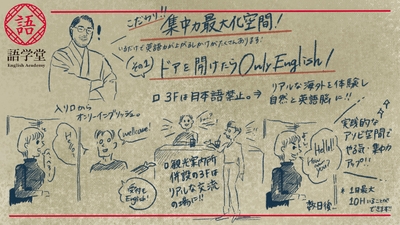 語
語学堂
English Academy
こだわり!!
集中力最大化空間!
いるだけで英語力が上がるしかけがたくさんあります!
その1
ドアを開けたらOnly English!
□ 3Fは日本語禁止。→
リアルな海外を体験し
自然と英語脳に!!
入り口から
オンリーイングリッシュ。
Hello~
welcome!
受付も
English!
□観光案内所
併設の3Fは
リアルな交流
の場に!!
Hello!!
How are
you?
数日後…
実践的な
アソビ空間で
やる気・集中力
アップ!!
* 1日最大
10Hいることが
できます!